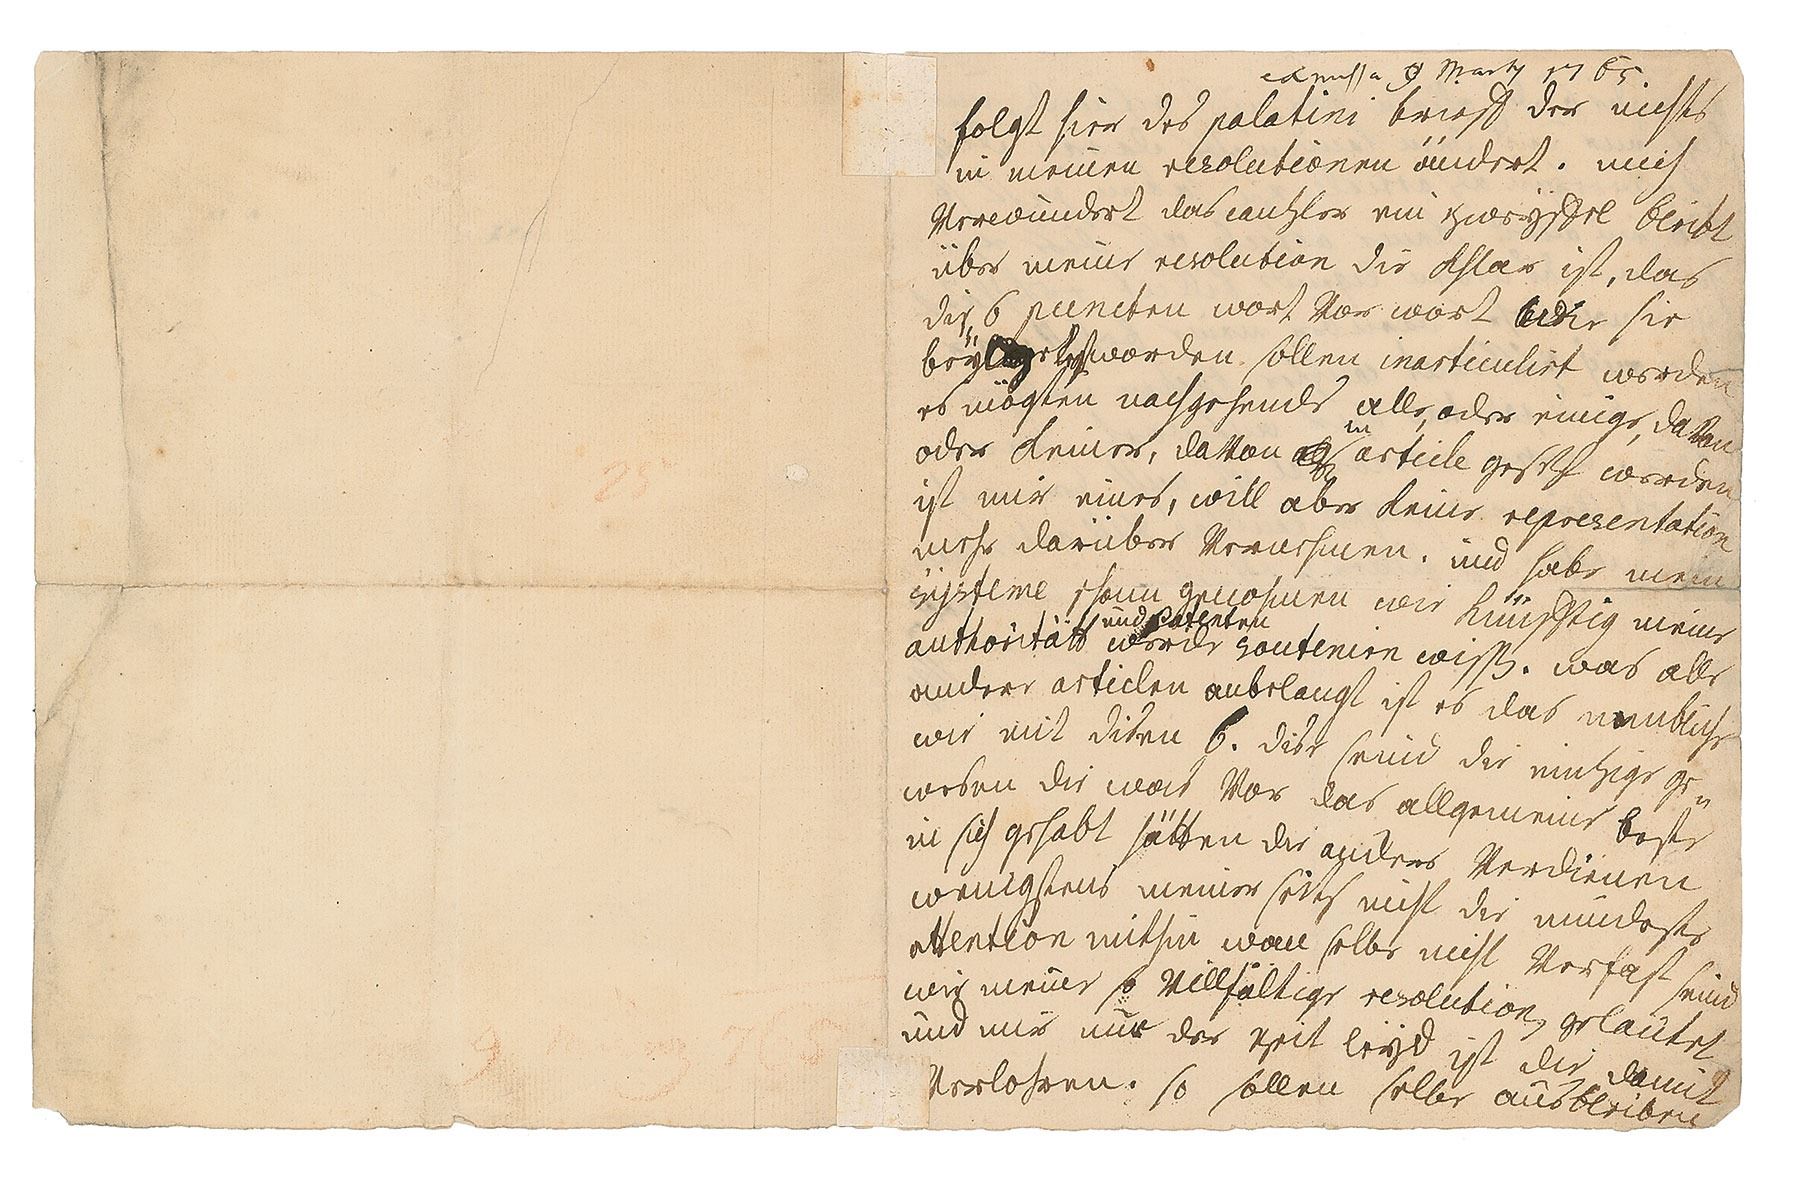 9 Marty 1765
folgt hier des palatini brieff der nichts
in meinen resolutionen ändert. mich
Verwundert das cantzler ein zweyffel bleibt
über meine resolution die khlar ist, das
die 6 puncten wort Vor wort wie sie
worden sollen inarticulirt werden
es mögten nachgehends alle, oder einige, davon
oder keiner, davon in article gesetzt werden
ist mir eines, will aber keine representation
mehr darüber Vernehmen. und habe mein
systeme schonn genohmen wie künfftig meine
authoritätt und Patenten werde soutenirn wissen. was alle
andere articlen anbelangt ist es das nembliche
wie mit disen 6. dise seind die eintzige ge-
wesen die was Vor das allgemeine beste
in sich gehabt hätten die andere Verdienen
wenigstens meiner seits nicht die mindeste
attention mithin wan selbe nicht Verfast seind
wie meine so Villfältige resolutionen gelautet
und mir nur der zeit leyd ist die damit
Verlohren. so sollen selbe ausbleiben
25
9 765